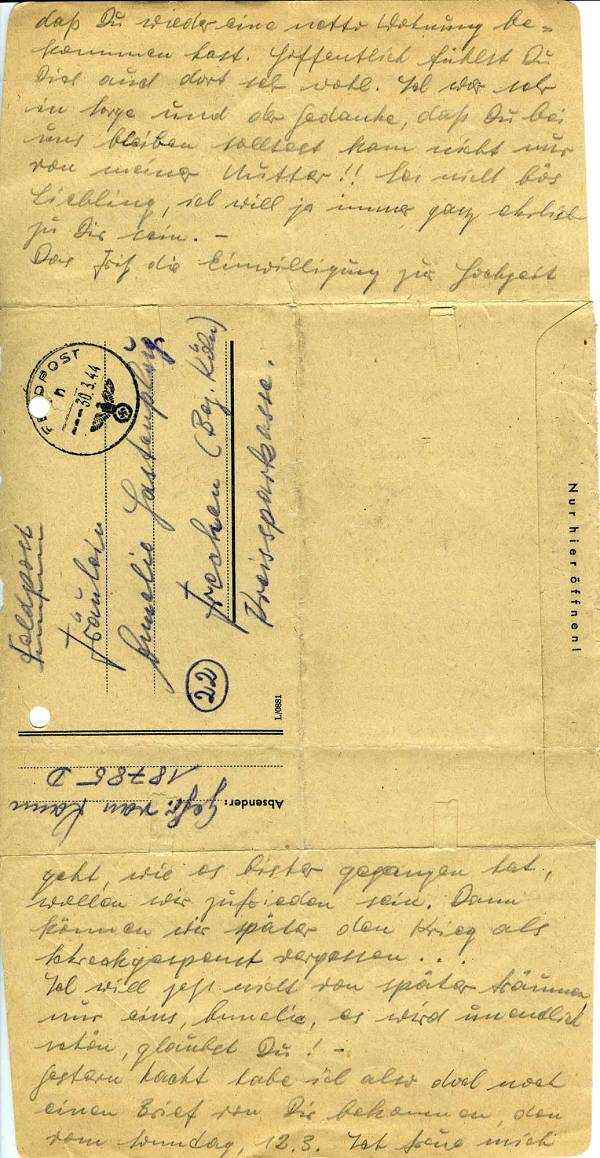 daß Du wieder eine nette Wohnung be-
kommen hast. Hoffentlich fühlst Du
Dich auch dort sehr wohl. Ich war sehr
in Sorge und der Gedanke, daß Du bei
uns bleiben solltest kam nicht nur
von meiner Mutter!! Sei nicht bös
Liebling, ich will ja immer ganz ehrlich
zu Dir sein. –
Das Fritz die Einwilligung zur Hochzeit
FELDPOST
n
30.3.44
Feldpost
Fräulein
Annelie
Frechen (Bez. Köln)
Kreissparkasse.
22
L/0881
Absender: Gefr. van
18785 D
Nur hier öffnen!
geht, wie es bisher gegangen hat,
wollen wir zufrieden sein. Dann
können wir später den Krieg als
Schreckgespenst vergessen...!
Ich will jetzt nicht von später träumen,
nur eins, Annelie, es wird unendlich
schön, glaubst Du! –
Gestern Nacht habe ich also doch noch
einen Brief von Dir bekommen, den
vom Sonntag, 12.3. Ich freue mich